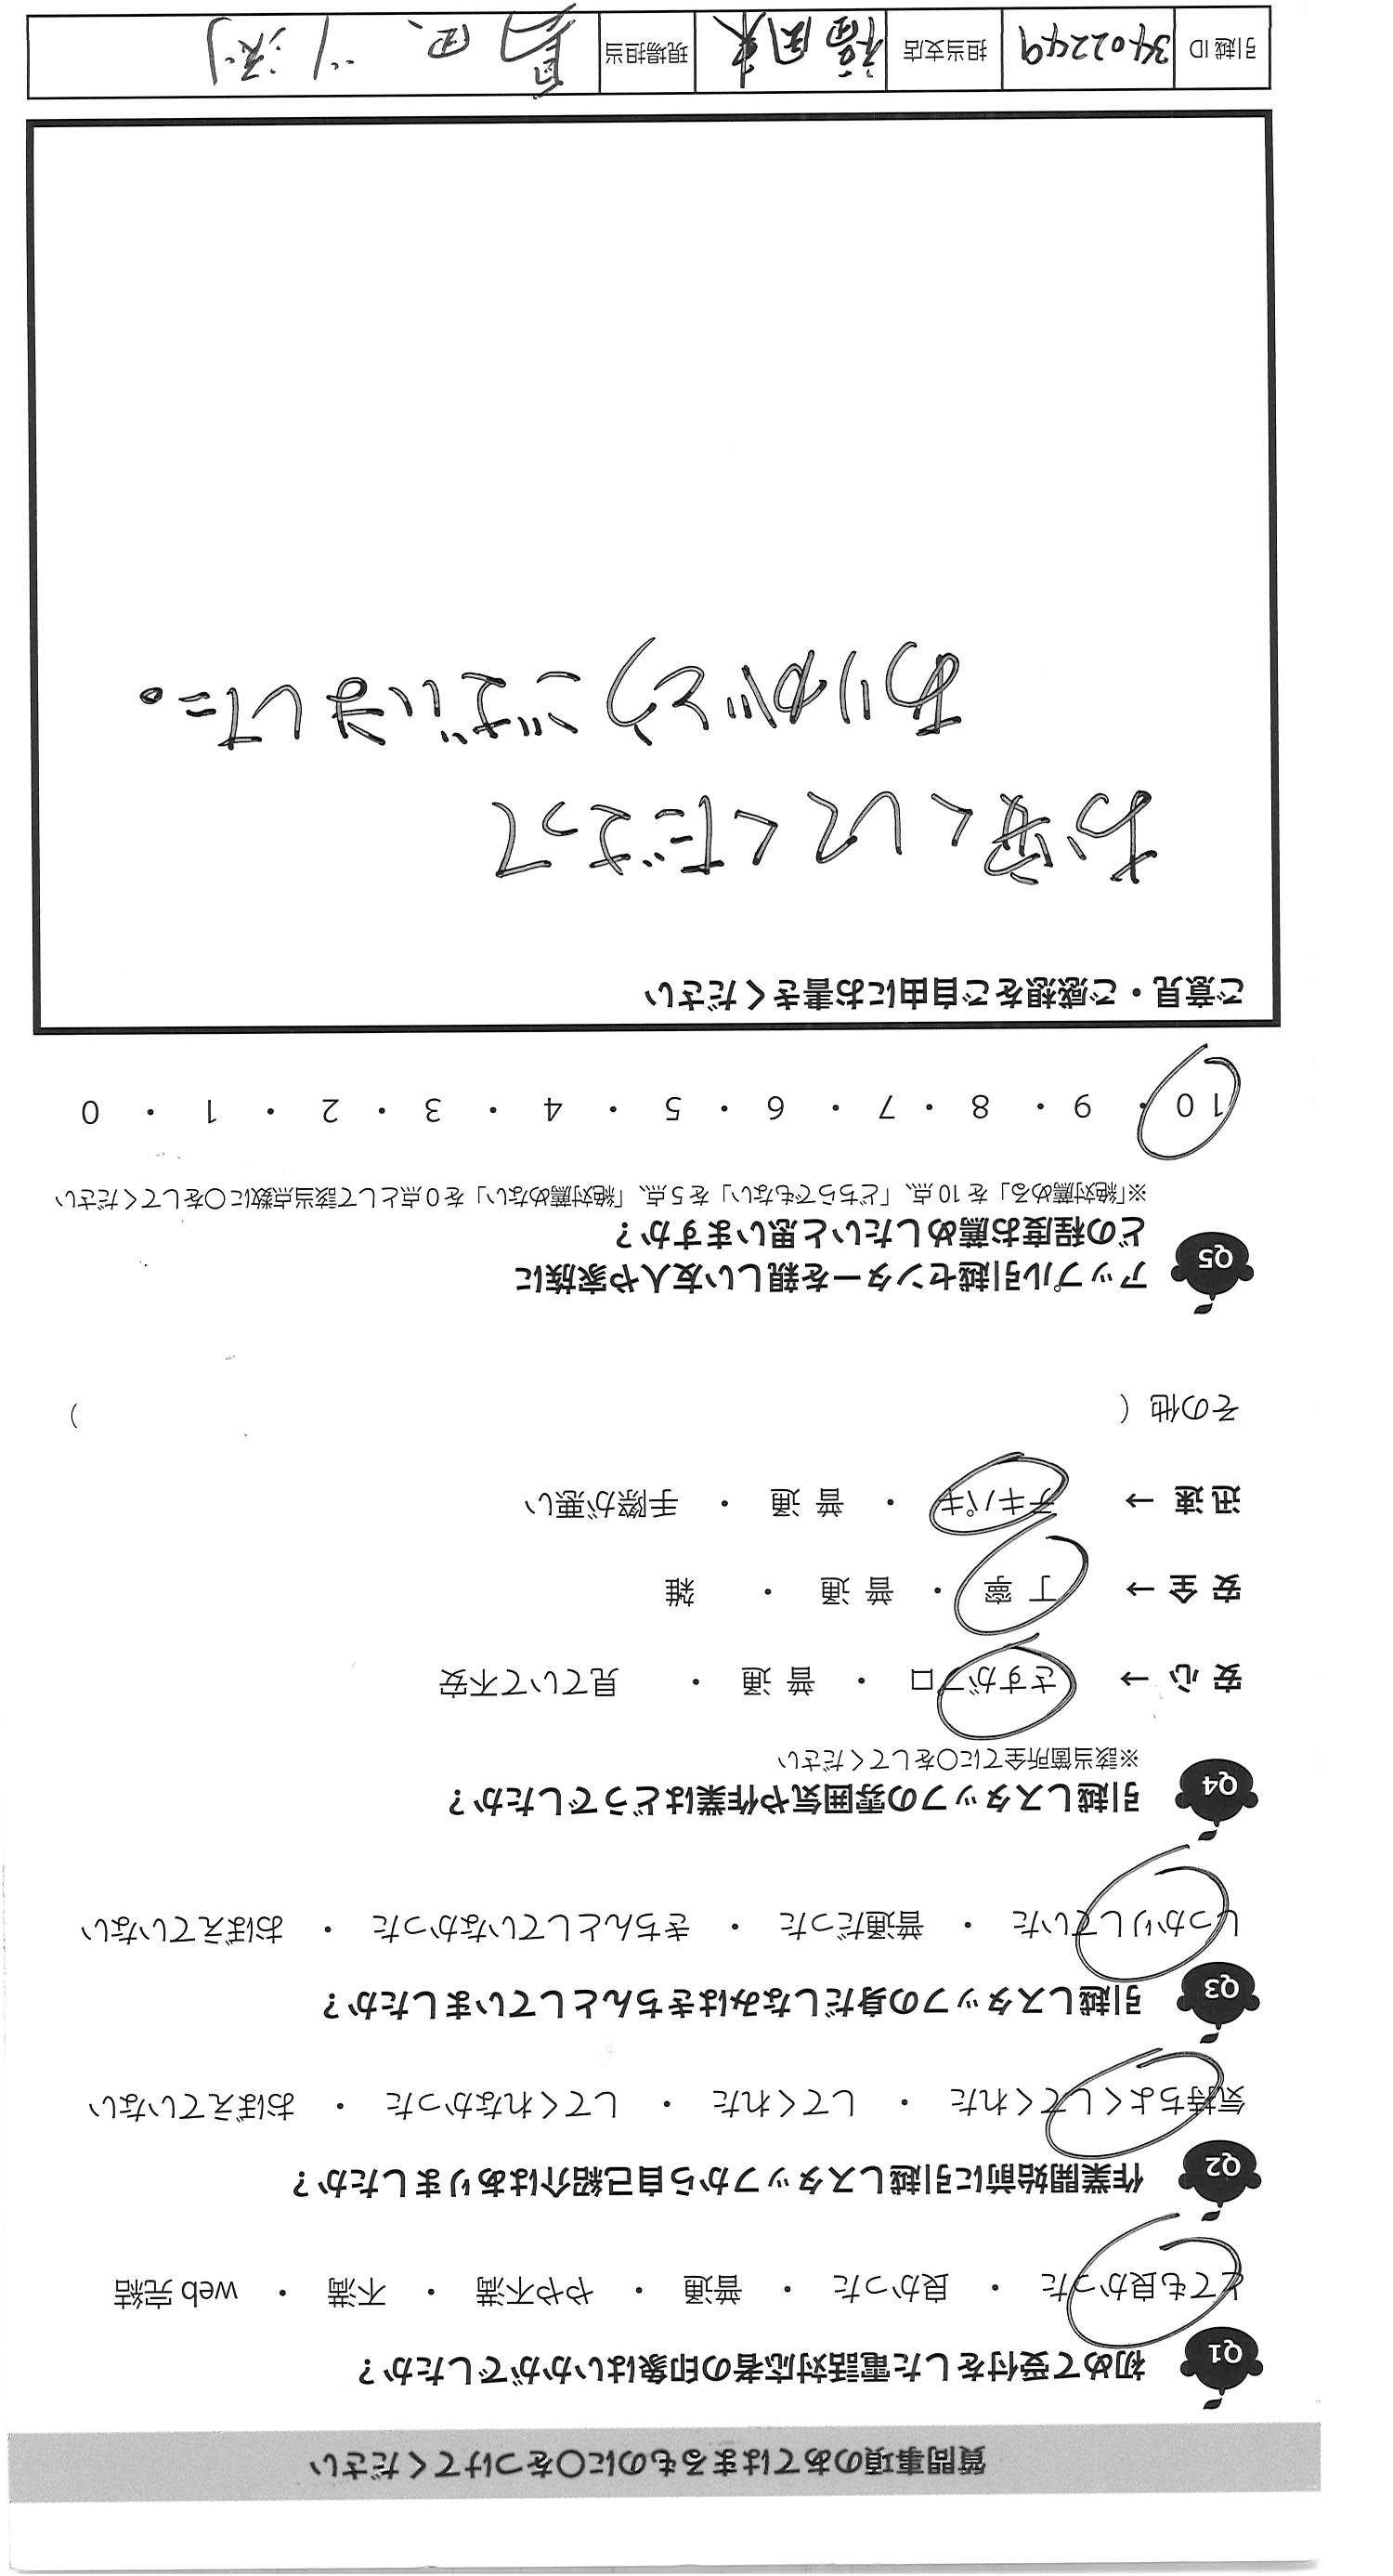 質問事項のあてはまるものに○をつけてください
Q1 初めて受付をした電話対応者の印象はいかがでしたか？
とても良かった ・ 良かった ・ 普通 ・ やや不満 ・ 不満 ・ web 完結
Q2 作業開始前に引越しスタッフから自己紹介はありましたか？
気持ちよくしてくれた ・ してくれた ・ してくれなかった ・ おぼえていない
Q3 引越しスタッフの身だしなみはきちんとしていましたか？
しっかりしていた ・ 普通だった ・ きちんとしていなかった ・ おぼえていない
Q4 引越しスタッフの雰囲気や作業はどうでしたか？
※該当箇所全てに○をしてください
安 心 → さすがプロ ・ 普 通 ・ 見ていて不安
安 全 → 丁 寧 ・ 普 通 ・ 雑
迅 速 → テキパキ ・ 普 通 ・ 手際が悪い
その他 （ ）
Q5 アップル引越センターを親しい友人や家族に
どの程度お薦めしたいと思いますか？
※「絶対薦める」を 10 点、「どちらでもない」を 5 点、「絶対薦めない」を 0 点として該当点数に○をしてください
10 ・ 9 ・ 8 ・ 7 ・ 6 ・ 5 ・ 4 ・ 3 ・ 2 ・ 1 ・ 0
ご意見・ご感想をご自由にお書きください
お安くしてくださって
ありがとうございました。
引越 ID 3402249 担当支店 福岡東 現場担当